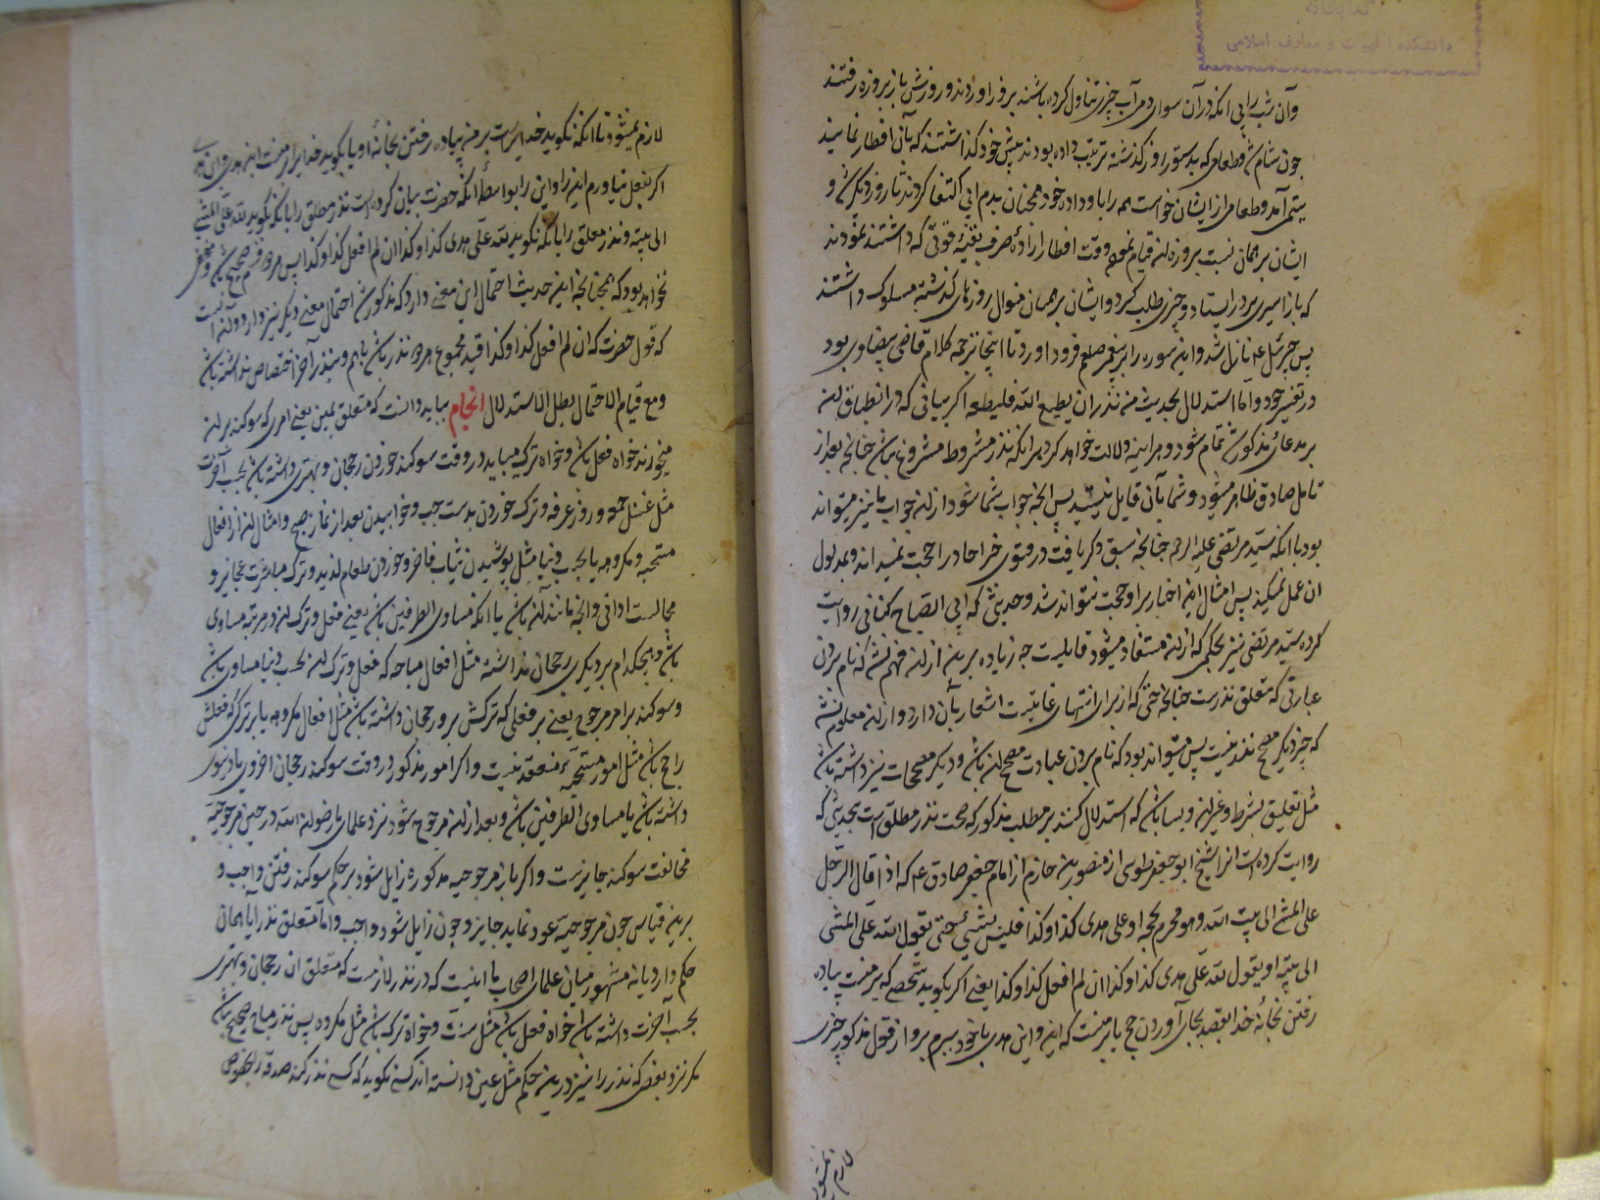 کتابخانه
دانشکده الهیات و معارف اسلامی
وآن شب را بی آنکه در آن سوای دم آب چیزی تناول کرده باشند بروز آوردند و روزش باز بروزه رفتند
چون شام شد و طعامی که بدستور روز گذشته ترتیب داده بودند پیش خود گذاشتند که بآن افطار نمایند
یتیمی آمد و طعام از ایشان خواست همه را باو داده خود همچنان بدم آبی اکتفا کردند تا روز دیگر شد و
ایشان بر همان نسبت بروزه آن قیام نموده وقت افطار اراده صرف بقیه قوتی که داشتند نمودند
که باز اسیری بر در ایستاد و چیزی طلب کرد و ایشان بر همان منوال روزهای گذشته مسلوک داشتند
پس جبرئیل ع نازل شد و این سوره را بر پیغمبر صلعم فرود آورد تا اینجا ترجمه کلام قاضی بیضاوی بود
در تفسیر خود و اما استدلال بحدیث من نذر ان یطیع الله فلیطعه اگر بیانی که در انطباق آن
بر مدعای مذکور شد تمام شود هر آینه دلالت خواهد کرد بر آنکه نذر مشروط مشروع باشد چنانچه بعد از
تامل صادق ظاهر میشود و شما بآن قایل نیستید پس آنچه جواب شما شود از آن جواب ما نیز میتواند
بود با آنکه سید مرتضی علیه الرحمه چنانچه سبق ذکر یافت در فتوی خبر احاد را حجت نمیداند و بمدلول
ان عمل نمیکند پس امثال این اخبار بر او حجت نتواند شد و حدیثی که ابی الصباح کنانی روایت
کرده سید مرتضی نیز بحکمی که از آن مستفاد میشود قایلست چه زیاده برین از آن فهم نشد که نام بردن
عبارتی که متعلق نذرست چنانچه حتی که از برای انتهای غایتست اشعار بآن دارد و از آن معلوم نشد
که چیز دیگر مصحح نذر نیست پس میتواند بود که نام بردن عبادت مصحح آن باشد و دیگر مصححات نیز داشته باشد
مثل تعلیق بشرط و غیر آن و بسا باشد که استدلال کنند بر مطلب مذکور که صحت نذر مطلق است بحدیثی که
روایت کرده است انرا شیخ ابو جعفر طوسی از منصور بن حازم از امام جعفر صادق ع که اذا قال الرجل
علی المشی الی بیت الله و هو محرم بحجه او علی هدی کذا و کذا فلیس بشیء حتی یقول لله علی المشی
الی بیته او یقول لله علی هدی کذا و کذا ان لم افعل کذا و کذا یعنی اگر بگوید شخصی که بر منست پیاده
رفتن بخانه خدا بقصد بجا آوردن حج یا بر منست که این و این هدی با خود ببرم برو از قول مذکور چیزی
لازم نمیشود
لازم نمیشود تا آنکه نگوید خدایراست بر من پیاده رفتن بخانه او یا بگوید خدایرا بر منست این هدی و این هدی
اگر بفعل نیاورم این را و این را بواسطه آنکه حضرت بیان کرده است نذر مطلق را بآنکه بگوید لله علی المشی
الی بیته و نذر معلق را بآنکه بگوید لله علی هدی کذا و کذا ان لم افعل کذا و کذا پس هر دو قسم صحیح باشد و مخفی
نخواهد بود که همچنانچه این حدیث احتمال این معنی دارد که مذکور شد احتمال معنی دیگر نیز دارد و آن آنست
که قول حضرت که ان لم افعل کذا و کذا قید مجموع هر دو نذر باشد باهم و بنذر آخر اختصاص نداشته باشد
و مع قیام الاحتمال بطل الاستدلال انجام بباید دانست که متعلق یمین یعنی امری که سوگند بر آن
میخورند خواه فعل باشد و خواه ترک میباید در وقت سوگند خوردن رجحان و بهتری داشته باشد بحسب آخرت
مثل غسل جمعه و روز عرفه و ترک خوردن بدست چپ و خوابیدن بعد از نماز صبح و امثال آن از افعال
مستحبه و مکروهه یا بحسب دنیا مثل پوشیدن ثیاب فاخر و خوردن طعام لذیذ و ترک مباشرت عجایز و
مجالست ادانی و آنچه مانند آن باشد یا آنکه مساوی الطرفین باشد یعنی فعل و ترک آن در مرتبه مساوی
باشد و هیچکدام بر دیگری رجحان نداشته مثل افعال مباحه که فعل و ترک آن بحسب دنیا مساوی باشد
و سوگند بر امر مرجوح یعنی بر فعلی که ترکش برو رجحان داشته باشد مثل افعال مکروهه یا بر ترکی که فعلش
راجح باشد مثل امور مستحبه منعقد نیست و اگر امور مذکوره در وقت سوگند رجحان اخروی یا دنیوی
داشته باشد یا مساوی الطرفین باشد و بعد از آن مرجوح شود نزد علمای ما رضوان الله در حین مرجوحیه
مخالفت سوگند جایزست و اگر باز مرجوحیه مذکوره زایل شود بر حکم سوگند رفتن واجب و
برین قیاس چون مرجوحیه عود نماید جایز و چون زایل شود واجب و اما متعلق نذر آیا همان
حکم دارد یا نه مشهور میان علمای اصحاب ما اینست که در نذر لازمست که متعلق ان رجحان و بهتری
بحسب آخرت داشته باشد خواه فعل باشد مثل سنت و خواه ترک باشد مثل مکروه پس نذر مباح صحیح باشد
مگر نزد بعضی که نذر را نیز درین حکم مثل یمین دانسته اند کسی نگوید که کسی نذر کند صدقه را بخصوص